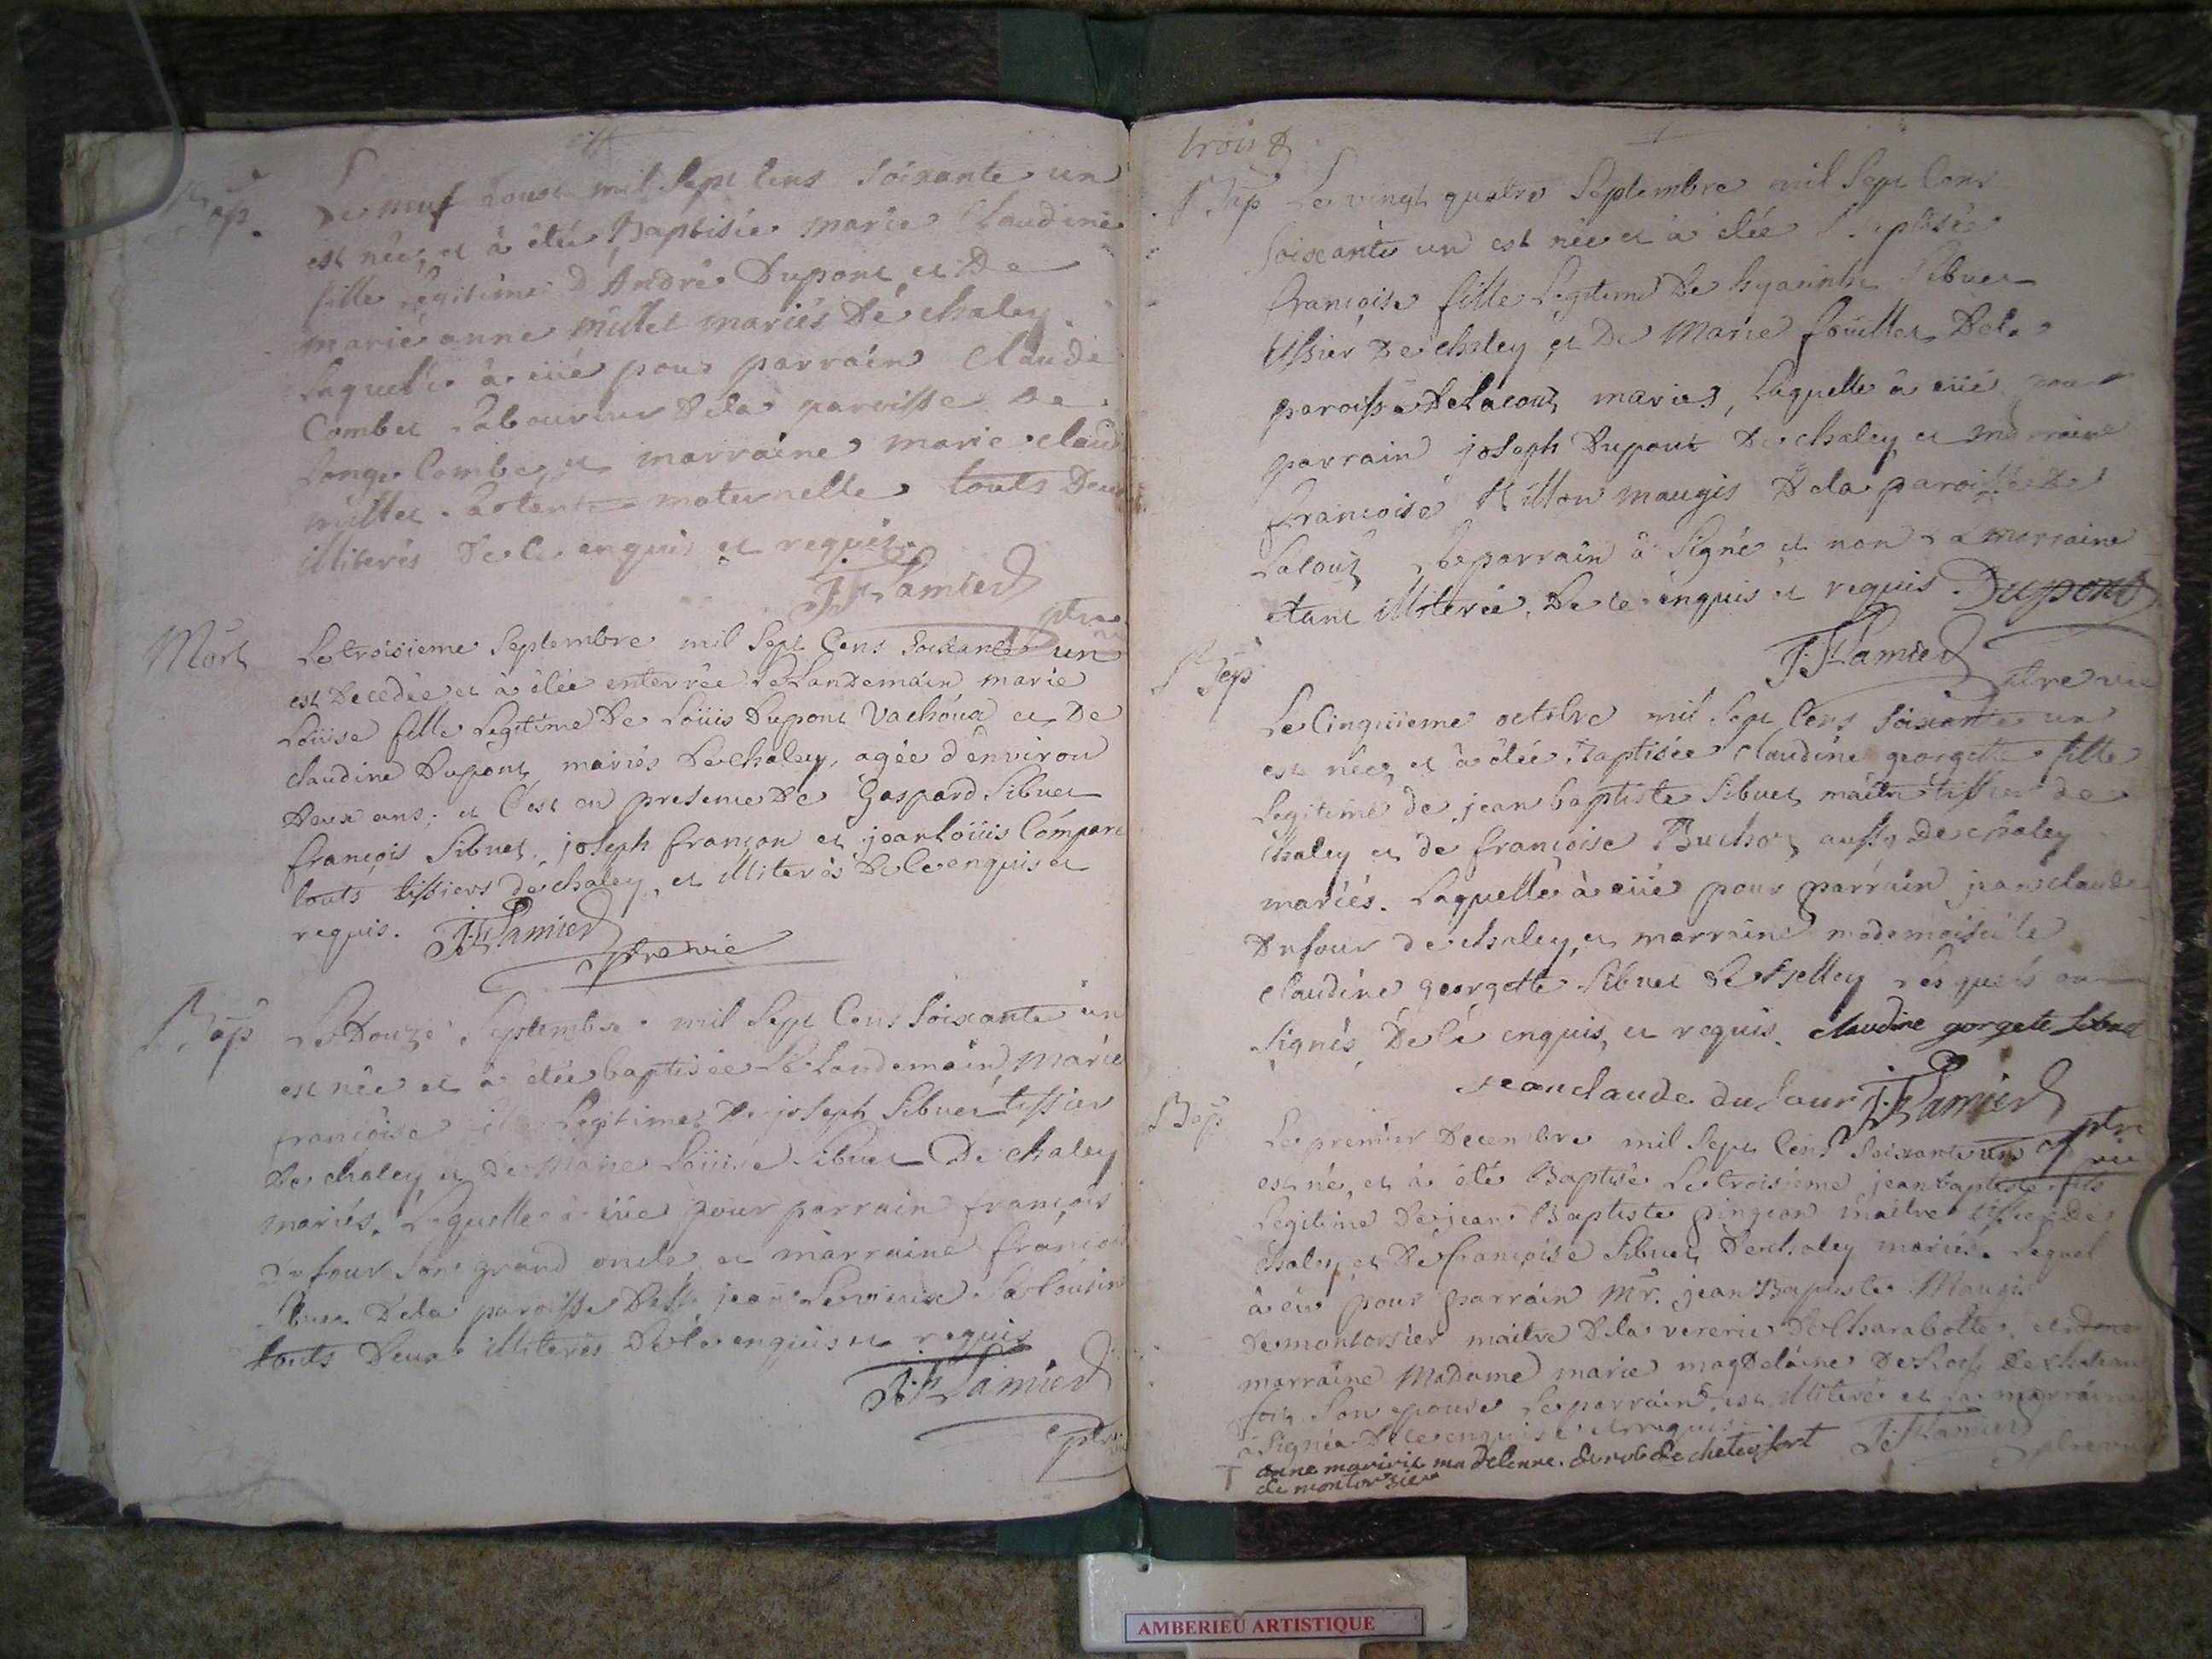 Bap.
Le neuf aoust mil sept cens soixante un
est née, et à étée Baptisée marie Claudine
fille légitime d'André Dupont, et De
marie anne millet mariés De chaley.
Laquelle à eüe pour parrain Claude
Combet Laboureur Dela paroisse De
Longe Combe, et marraine marie
millet, la tante maternelle touts Deux
illiterés De ce enquis et requis.
J: F: Lamier
ptre
Mort
Le troisieme Septembre mil Sept Cens Soixante un
est Decedée et à étée enterrée Le Landemain marie
Loüise fille Legitime De Loüis Dupont Vachoux et De
claudine Dupont, mariés De chaley, agée d'environ
Deux ans; et C'est en presence De Gaspard Sibuet
françois Sibuet, joseph françon et jean Loüis Compare
touts tissiers de chaley, et illiterés De Ce enquis et
requis. J: F: Lamier
ptre vic
Bap
Le Douze Septembre mil Sept Cens Soixante un
est née et à étée baptisée Le Landemain, Marie
françoise Legitime De joseph Sibuet tissier
De chaley et De Marie Loüise Sibuet De chaley
mariés. Laquelle à eüe pour parrain françois
Dufour Son grand oncle et marraine
Sibuet Dela paroisse De St jean Le vieux Sa Cousine
touts Deux illiterés De Ce enquis et requis
J: F: Lamier
ptre
trois
Bap Le vingt quatre Septembre mil Sept Cens
Soixante un est née et à étée Baptisée
françoise fille Legitime De hyacinthe Sibuet
tissier De chaley et De Marie foüillet Dela
paroisse De Lacoux mariés, Laquelle à eüe pour
parrain joseph Dupont De chaley et marraine
françoise Millon maugis Dela paroisse De
Lacoux Le parrain à Signé et non La marraine
etant illiterée, De ce enquis et requis. Dupont
J: F: Lamier
ptre vic
Bap
Le Cinquieme octobre mil Sept Cens Soixante un
est née, et à étée Baptisée Claudine georgette fille
Legitime de jean baptiste Sibuet maitre tissier de
Chaley et de françoise Buchot aussy De chaley
mariés. Laquelle à eüe pour parrain jean claude
Dufour de chaley, et marraine mademoiselle
claudine georgette Sibuet De Lesquels ont
Signés De Ce enquis, et requis. claudine gorgete Sibuet
jean claude du four J: F: Lamier
ptre vic
Bap
Le premier Decembre mil Sept Cens Soixante un
est né, et à été Baptisé Le troisieme jean baptiste fils
Legitime De jean Baptiste pingeon maitre tissier de
chaley et De françoise Sibuet De chaley mariés. Lequel
à eü pour parrain Mr. jean Baptiste Maugis
De montorsier maitre Dela vererie De Charabotte, et
marraine Madame marie magDelaine De Roch De chateau
fort Son epouse Le parrain est illiteré et la marraine
à Signée De Ce enquise et requise
anne marie madelenne. de chateufort J: F: Lamier
de montorsier ptre vic
AMBERIEU ARTISTIQUE